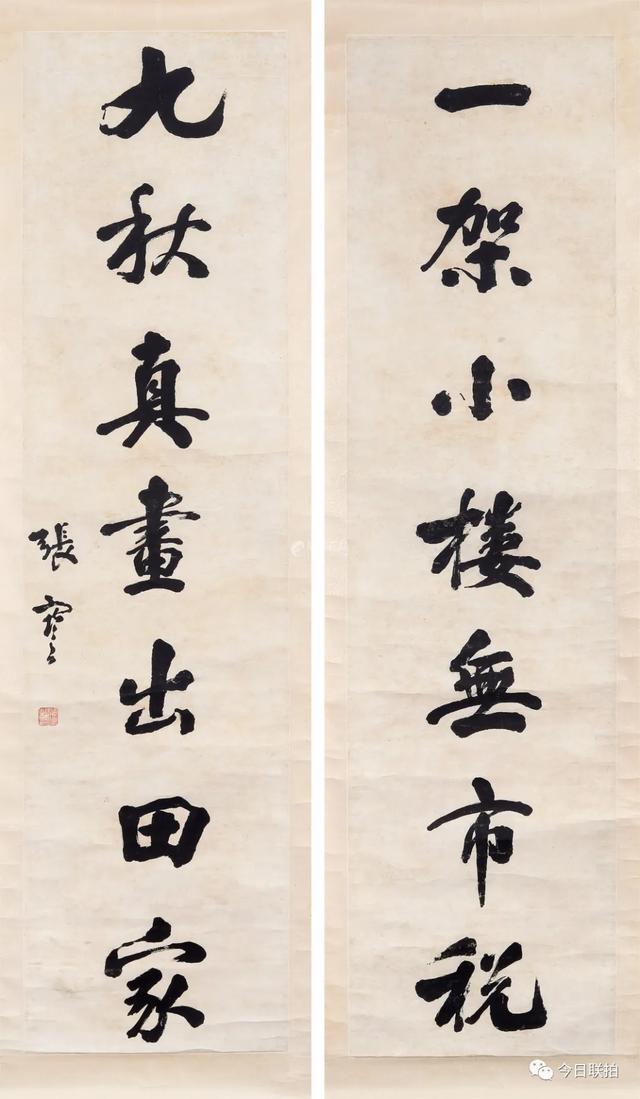 一架小樓無市税
九秋真畫出田家
張謇
今日联拍